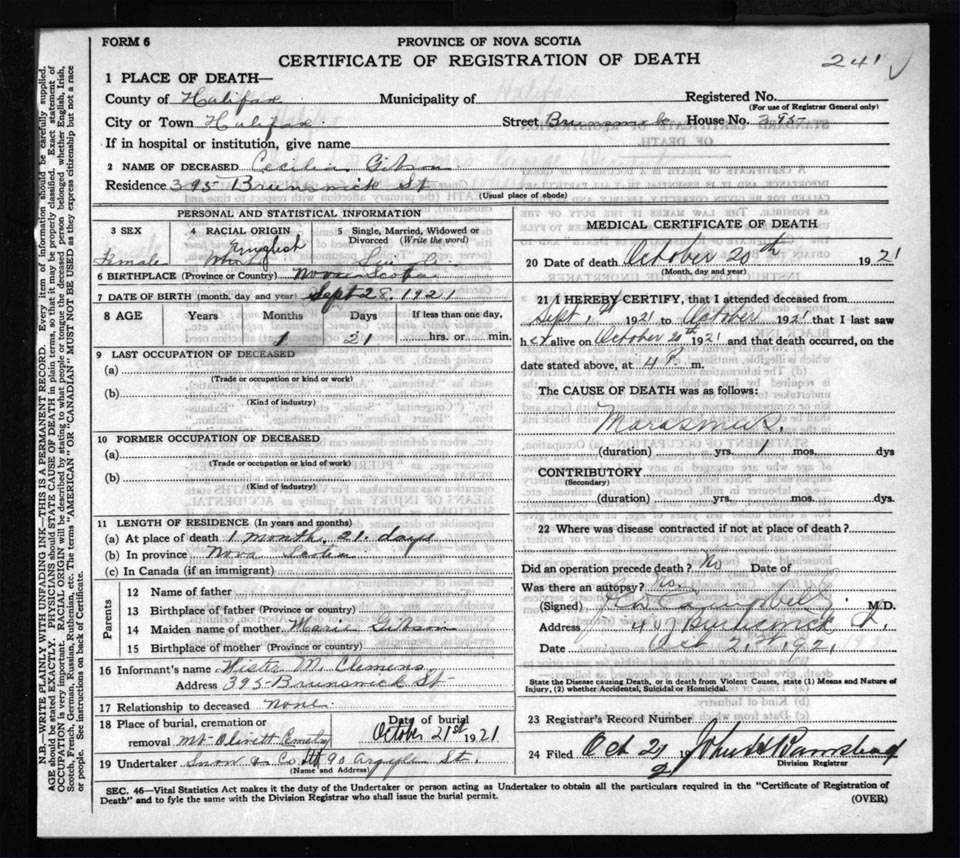 FORM 6
PROVINCE OF NOVA SCOTIA
CERTIFICATE OF REGISTRATION OF DEATH
241
1 PLACE OF DEATH—
County of Halifax Municipality of Registered No.
(For use of Registrar General only)
City or Town Halifax Street Brunswick House No. 395
If in hospital or institution, give name
2 NAME OF DECEASED Cecilia Gibson
Residence 395 Brunswick St
(Usual place of abode)
PERSONAL AND STATISTICAL INFORMATION
3 SEX Female
4 RACIAL ORIGIN English White
5 Single, Married, Widowed or Divorced (Write the word) Single
6 BIRTHPLACE (Province or Country) Nova Scotia
7 DATE OF BIRTH (month, day and year) Sept 28. 1921
8 AGE Years Months Days If less than one day,
1 21 hrs. or min.
9 LAST OCCUPATION OF DECEASED
(a)
(Trade or occupation or kind or work)
(b)
(Kind of industry)
10 FORMER OCCUPATION OF DECEASED
(a)
(Trade or occupation or kind or work)
(b)
(Kind of industry)
11 LENGTH OF RESIDENCE (In years and months)
(a) At place of death 1 month. 21. days
(b) In province Nova Scotia
(c) In Canada (if an immigrant)
Parents
12 Name of father
13 Birthplace of father (Province or country)
14 Maiden name of mother Marie Gibson
15 Birthplace of mother (Province or country)
16 Informant's name M. Clemens
Address 395 Brunswick St
17 Relationship to deceased None
18 Place of burial, cremation or removal Mt Olivett Cemetery
Date of burial October 21st 1921
19 Undertaker Snow & Co Ltd 90 Argyle St.
(Name and Address)
MEDICAL CERTIFICATE OF DEATH
20 Date of death October 20th 1921
(Month, day and year)
21 I HEREBY CERTIFY, that I attended deceased from
Sept 1st 1921 to October 1921 that I last saw
her alive on October 20th 1921 and that death occurred, on the
date stated above, at 4 P m.
The CAUSE OF DEATH was as follows:
Marasmus.
(duration) yrs. 1 mos. dys
CONTRIBUTORY
(Secondary)
(duration) yrs. mos. dys.
22 Where was disease contracted if not at place of death?
Did an operation precede death? No Date of
Was there an autopsy? No.
(Signed) Campbell M.D.
Address 407 Brunswick St.
Date Oct 21st 1921
State the Disease causing Death, or in death from Violent Causes, state (1) Means and Nature of
Injury, (2) whether Accidental, Suicidal or Homicidal.
23 Registrar's Record Number
24 Filed Oct 21 192
Division Registrar
SEC. 46—Vital Statistics Act makes it the duty of the Undertaker or person acting as Undertaker to obtain all the particulars required in the "Certificate of Registration of
Death" and to fyle the same with the Division Registrar who shall issue the burial permit.
(OVER)
N.B.—WRITE PLAINLY WITH UNFADING INK—THIS IS A PERMANENT RECORD. Every item of information should be carefully supplied.
AGE should be stated EXACTLY. PHYSICIANS should STATE CAUSE OF DEATH in plain terms, so that it may be properly classified. Exact statement of
OCCUPATION is very important. RACIAL ORIGIN will be described by stating to what people or tongue the deceased person belonged whether English, Irish,
Scotch, French, German, Russian, Ruthenian, etc. The terms "AMERICAN" OR "CANADIAN" MUST NOT BE USED as they express citizenship but not a race
or people. See instructions on back of Certificate.